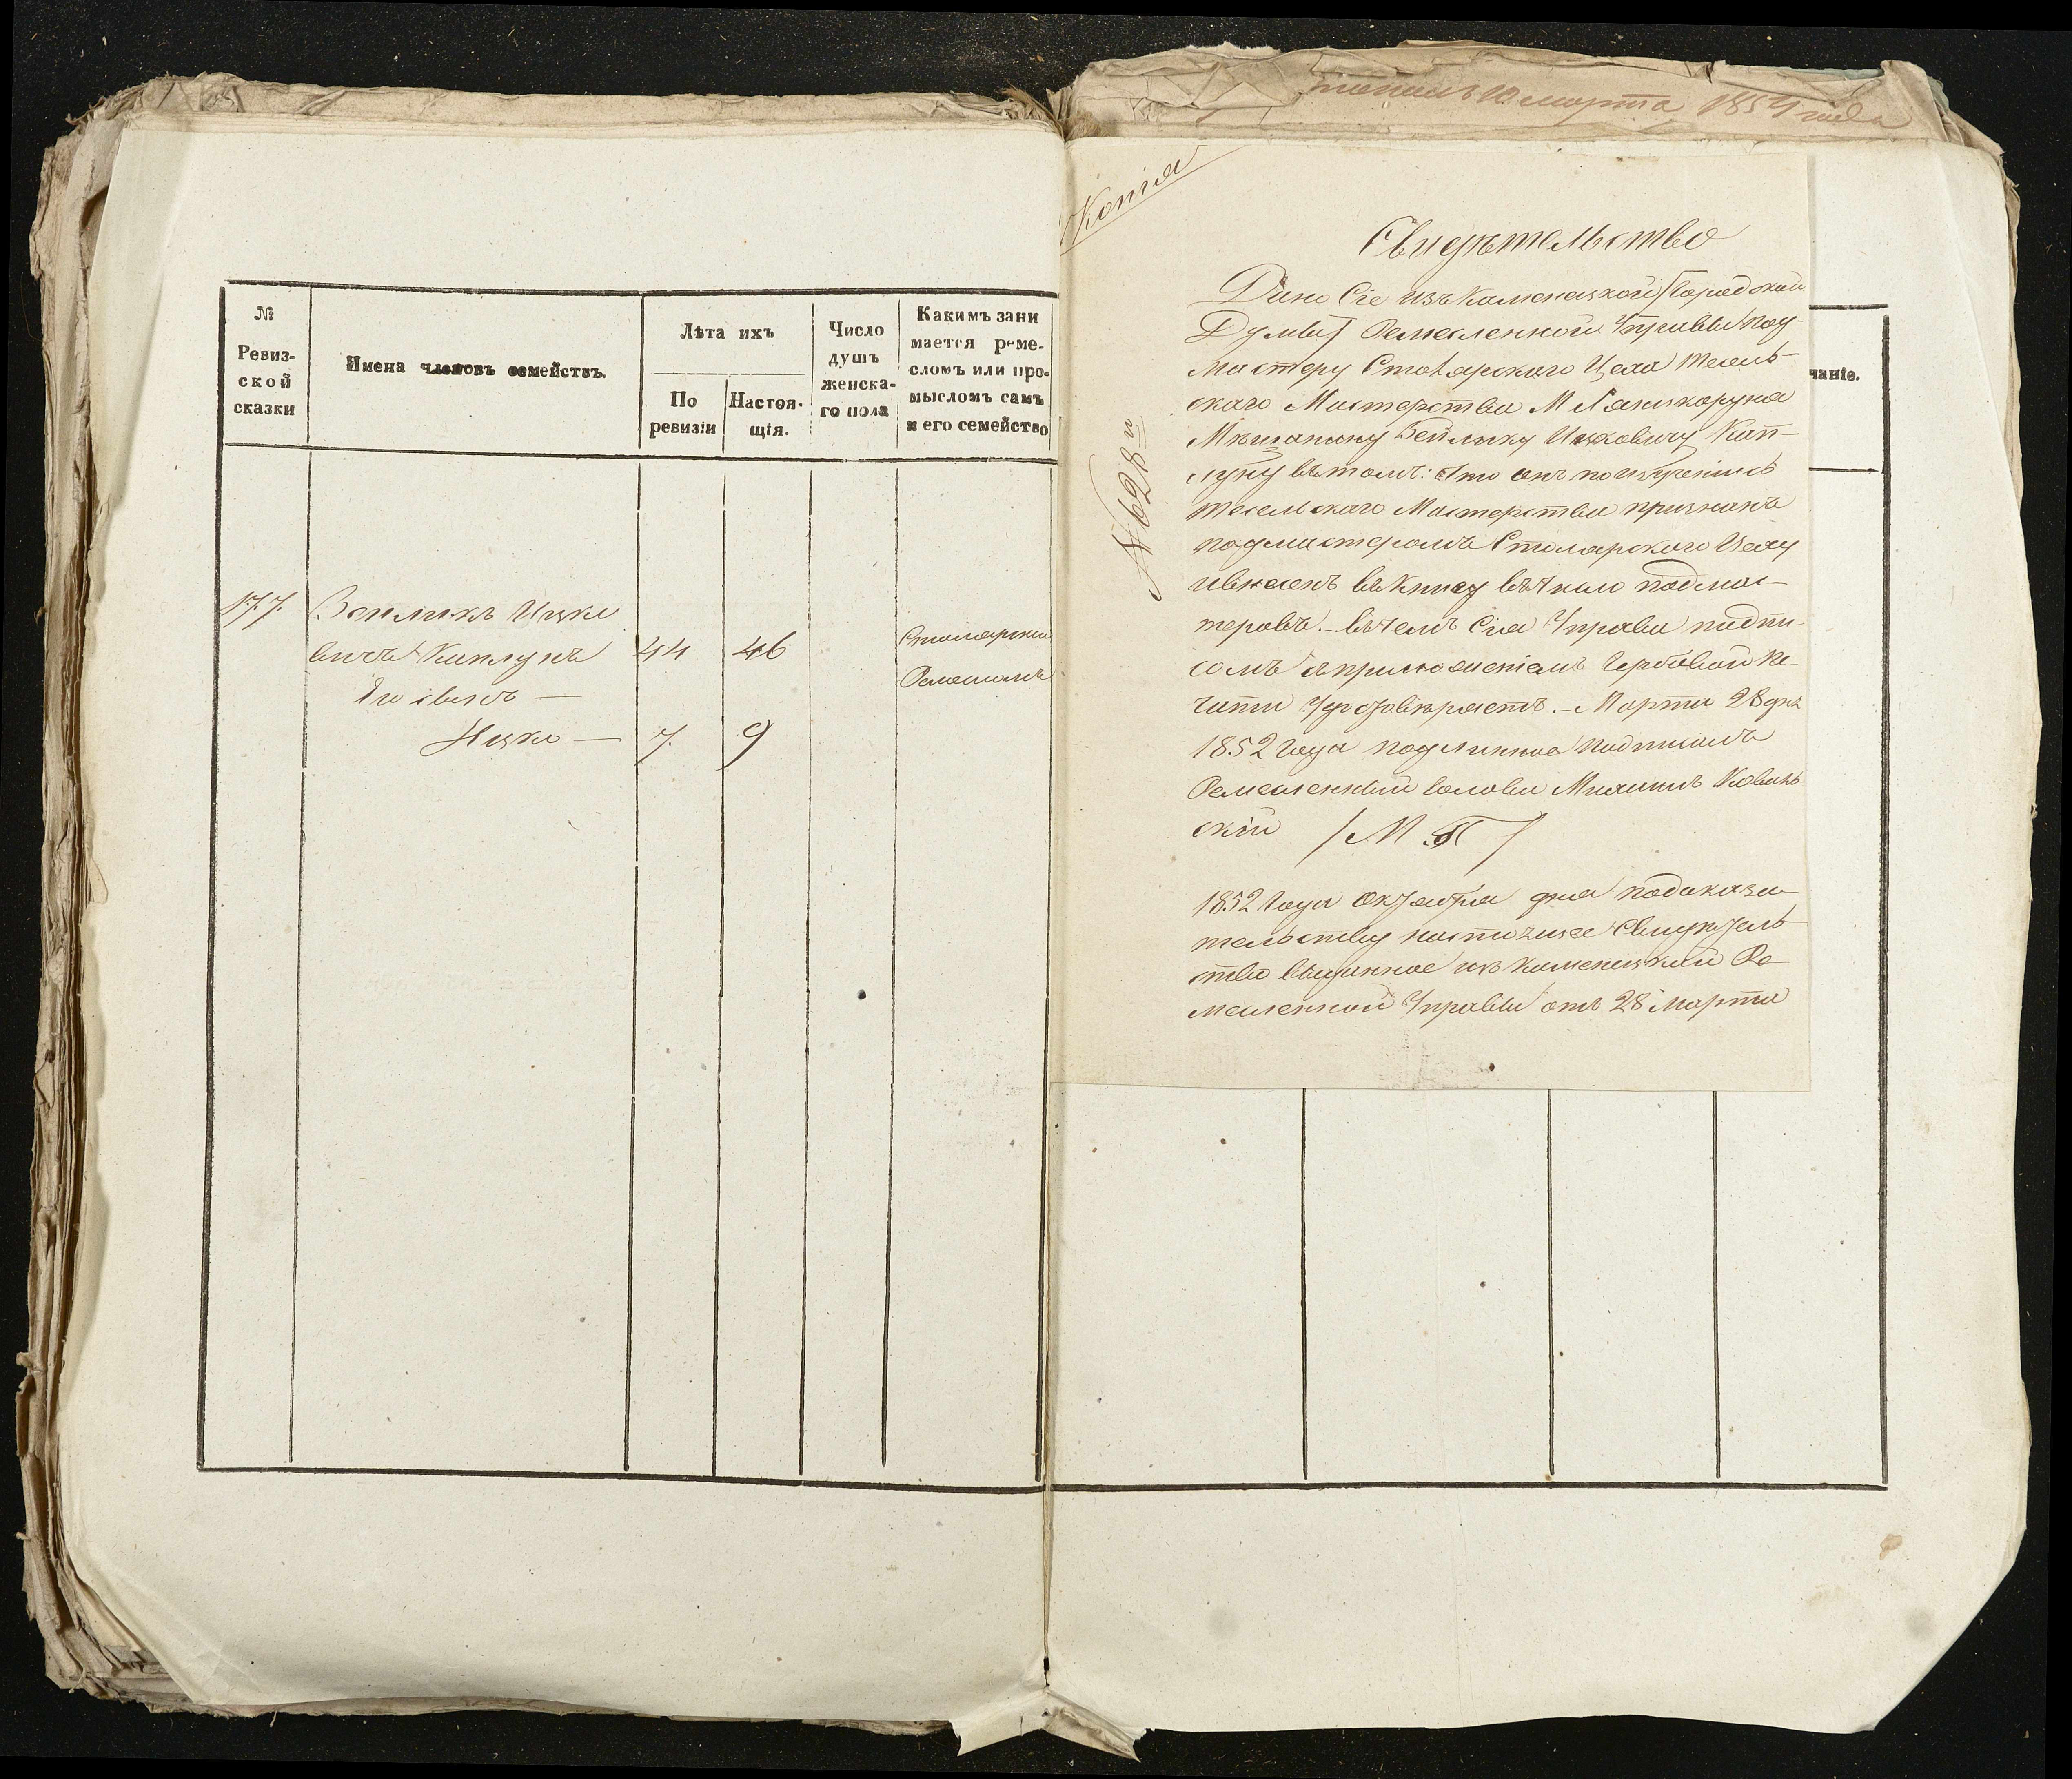 марта 1854 года
№ Ревизской сказки
Имена членовъ семействъ.
Лѣта ихъ
По ревизіи
Настоящія.
Число душъ женскаго пола
Какимъ занимается ремесломъ или промысломъ самъ и его семейство
177
Бейликъ Ицко
вичъ Каплунъ 44 46 Столярнымъ
Ремесломъ
Его сынъ —
Ицко — 7. 9
Копія
№ 628й
чаніе.
Свидѣтельство
Дано Сіе изъ Каменецкой /Городской
Думы/ Ремесленной Управы под-
мастеру Столярскаго Цеха тесель-
скаго Мастерства М Лянцкоруна
Мѣщанину Бейлику Ицковичу Кап-
луну въ томъ: Что онъ по изученіи
тесельскаго Мастерства признанъ
подмастеромъ Столярскаго Цеху
и внесенъ въ книгу въ число подмас-
теровъ. – въ чемъ Сія Управа подпи-
сомъ и приложеніемъ Гербовой пе-
чати Удостовѣряетъ. – Марта 28 дня
1852 Года подлинное подписалъ
Ремесленный Голова Михаилъ Ковань
скій /М П/
1852 Года Октября дня по доказа-
тельству настоящее Свидѣтель
ство выданное изъ Каменецкой Ре-
месленной Управы отъ 28 Марта